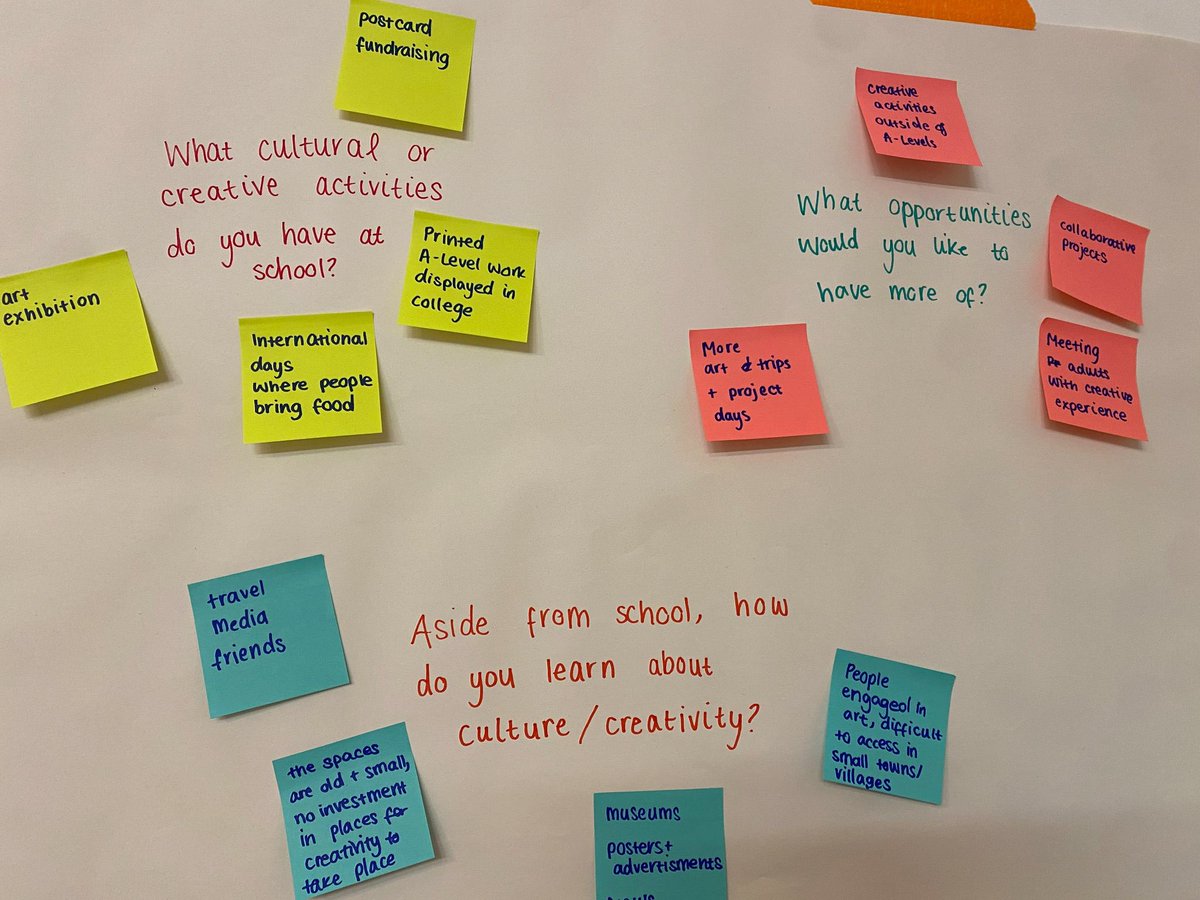 postcard
fundraising
What cultural or
creative activities
do you have at
school?
art
exhibition
Printed
A-Level work
displayed in
college
International
days
where people
bring food
creative
activities
outside of
A-Levels
What opportunities
would you like to
have more of?
collaborative
projects
More
art & trips
+ project
days
Meeting
adults
with creative
experience
travel
media
friends
Aside from school, how
do you learn about
culture/creativity?
the spaces
are old + small,
no investment
in places for
creativity to
take place
People
engaged in
art, difficult
to access in
small towns/
villages
museums
posters +
advertisments